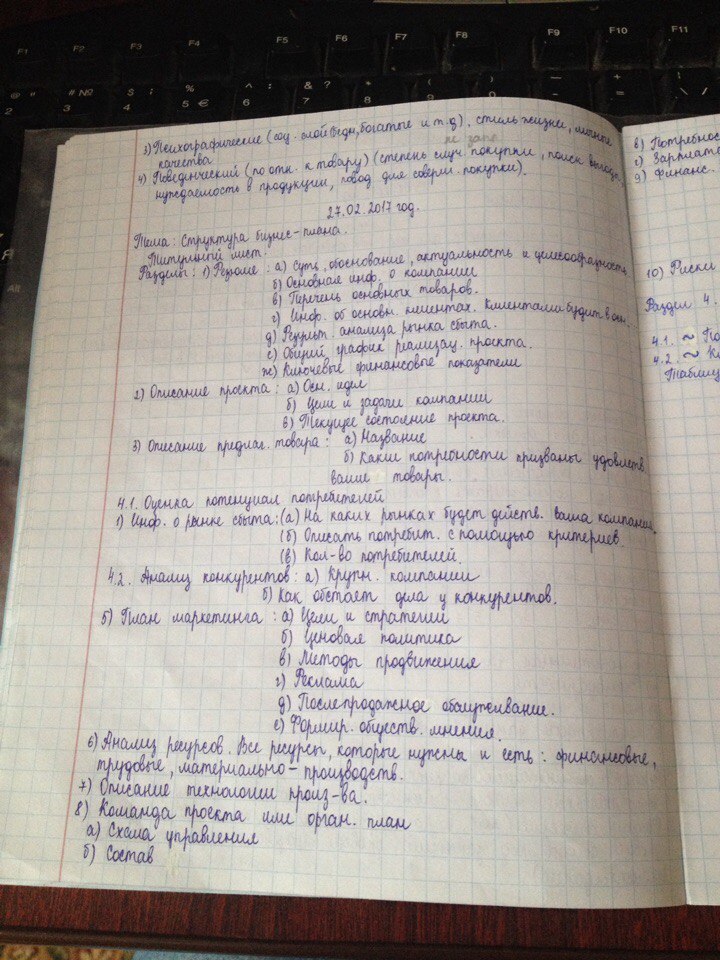 3) Психографические (соц. слой (бедн, богатые и т.д), стиль жизни, личные
качества
4) Поведенческий (по отн. к товару) (степень случ. покупки, поиск выгоды,
нуждаемость в продукции, повод для соверш. покупки).
27.02.2017 год.
Тема: Структура бизнес-плана.
Титульный лист.
Разделы: 1) Резюме: а) Суть, обоснование, актуальность и целесообразность
б) Основная инф. о компании
в) Перечень основных товаров.
г) Инф. об основн. клиентах. Клиентами будит в осн.
д) Результ. анализа рынка сбыта.
е) Общий график реализац. проекта.
ж) Ключевые финансовые показатели
2) Описание проекта: а) Осн. идея
б) Цели и задачи компании
в) Текущее состояние проекта.
3) Описание предлаг. товара: а) Название
б) Какие потребности призваны удовлетв.
ваши товары.
4.1. Оценка потенциал потребителей
1) Инф. о рынке сбыта: (а) На каких рынках будет действ. ваша компания.
(б) Описать потребит. с помощью критериев.
(в) Кол-во потребителей.
4.2. Анализ конкурентов: а) Крупн. компании
б) Как обстоят дела у конкурентов.
5) План маркетинга: а) Цели и стратегии
б) Ценовая политика
в) Методы продвижения
г) Реклама
д) Послепродажное обслуживание.
е) Формир. обществ. мнения.
6) Анализ ресурсов. Все ресурсы, которые нужны и есть: финансовые,
трудовые, материально-производств.
7) Описание технологии произ-ва.
8) Команда проекта или орган. план
а) Схема управления
б) Состав
в) Потребнос
г) Зарплата
9) Финанс.
10) Риски
Раздел 4.
4.1. ~ По
4.2. ~ К
Таблиц
F1
F2
F3
F4
F5
F6
F7
F8
F9
F10
F11
Alt